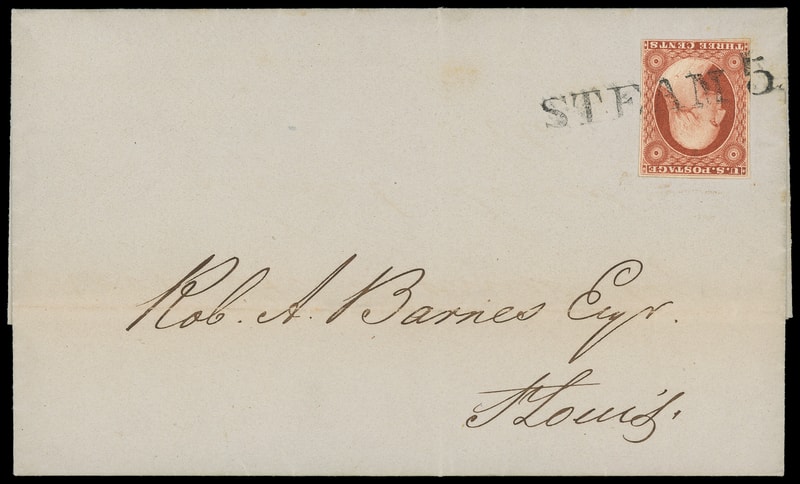 THREE CENTS
STEAM 5
U.S. POSTAGE
Rob. A. Barnes Esqr.
St Louis.